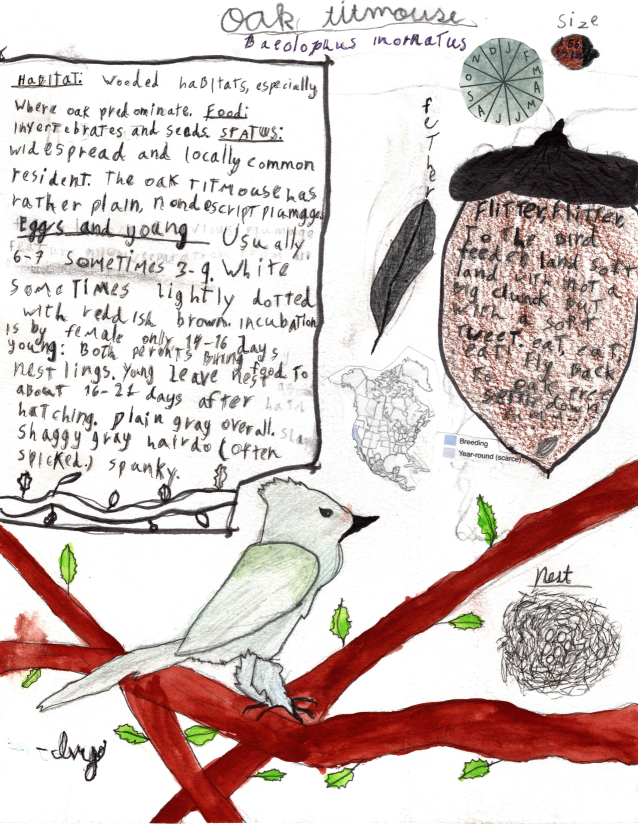 Oak titmouse
Baeolophus inornatus
Size
J F M A M J J A S O N D
feTher
Habitat: Wooded habitats, especially
where oak predominate. Food:
invertebrates and seeds. STATUS:
widespread and locally common
resident. The oak TITMouse has
rather plain, nondescript plumgge
Eggs and young Usually
6-7 sometimes 3-9. White
sometimes lightly dotted
with reddish brown. incubation
is by female only 14-16 days
young: Both perents bring food to
nestlings. Young leave nest
about 16-21 days after
hatching. plain gray overall.
Shaggy gray hairdo (often
spicked.) spanky.
Flitter, flitter,
To the bird
feeder land soft
land with not a
big clunck but
with a soft
Tweet. eat, eat,
eat! Fly back
To oak tree
settle down
Breeding
Year-round (scarce)
nest